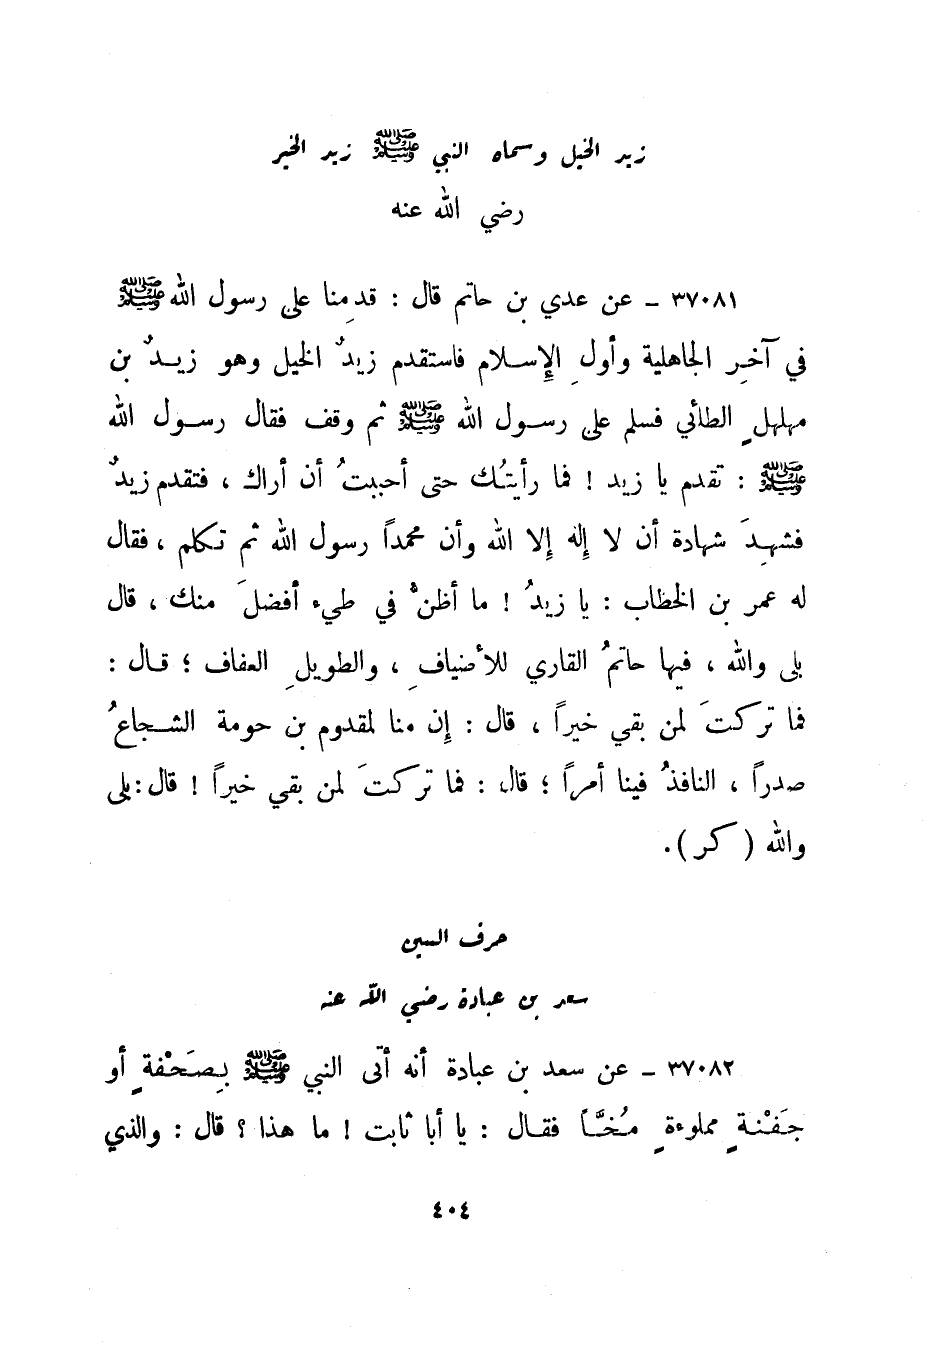 زيد الخيل وسماه النبي ﷺ زيد الخير
رضي الله عنه
٣٧٠٨١ - عن عدي بن حاتم قال : قدمِنا على رسول الله ﷺ
في آخرِ الجاهلية وأولِ الإِسلام فاستقدم زيدٌ الخيل وهو زيدٌ بن
مهلهلٍ الطائي فسلم على رسول الله ﷺ ثم وقف فقال رسول الله
ﷺ : تقدم يا زيد ! فما رأيتُك حتى أحببتُ أن أراك ، فتقدم زيدٌ
فشهِدَ شهادة أن لا إِله إِلا الله وأن محمداً رسول الله ثم تكلم ، فقال
له عمر بن الخطاب : يا زيدُ ! ما أظنُّ في طيء أفضلَ منك ، قال
بلى والله ، فيها حاتمُ القاري للأضيافِ ، والطويلِ العفاف ؛ قال :
فما تركتَ لمن بقي خيراً ، قال : إِن منا لمقدوم بن حومة الشجاعُ
صدراً ، النافذُ فينا أمراً ؛ قال : فما تركتَ لمن بقي خيراً ! قال : بلى
والله ( كر ) .
حرف السين
سعد بن عبادة رضي الله عنه
٣٧٠٨٢ - عن سعد بن عبادة أنه أتى النبي ﷺ بِصَحْفةٍ أو
جَفْنةٍ مملوءةٍ مُخَّاً فقال : يا أبا ثابت ! ما هذا ؟ قال : والذي
٤٠٤